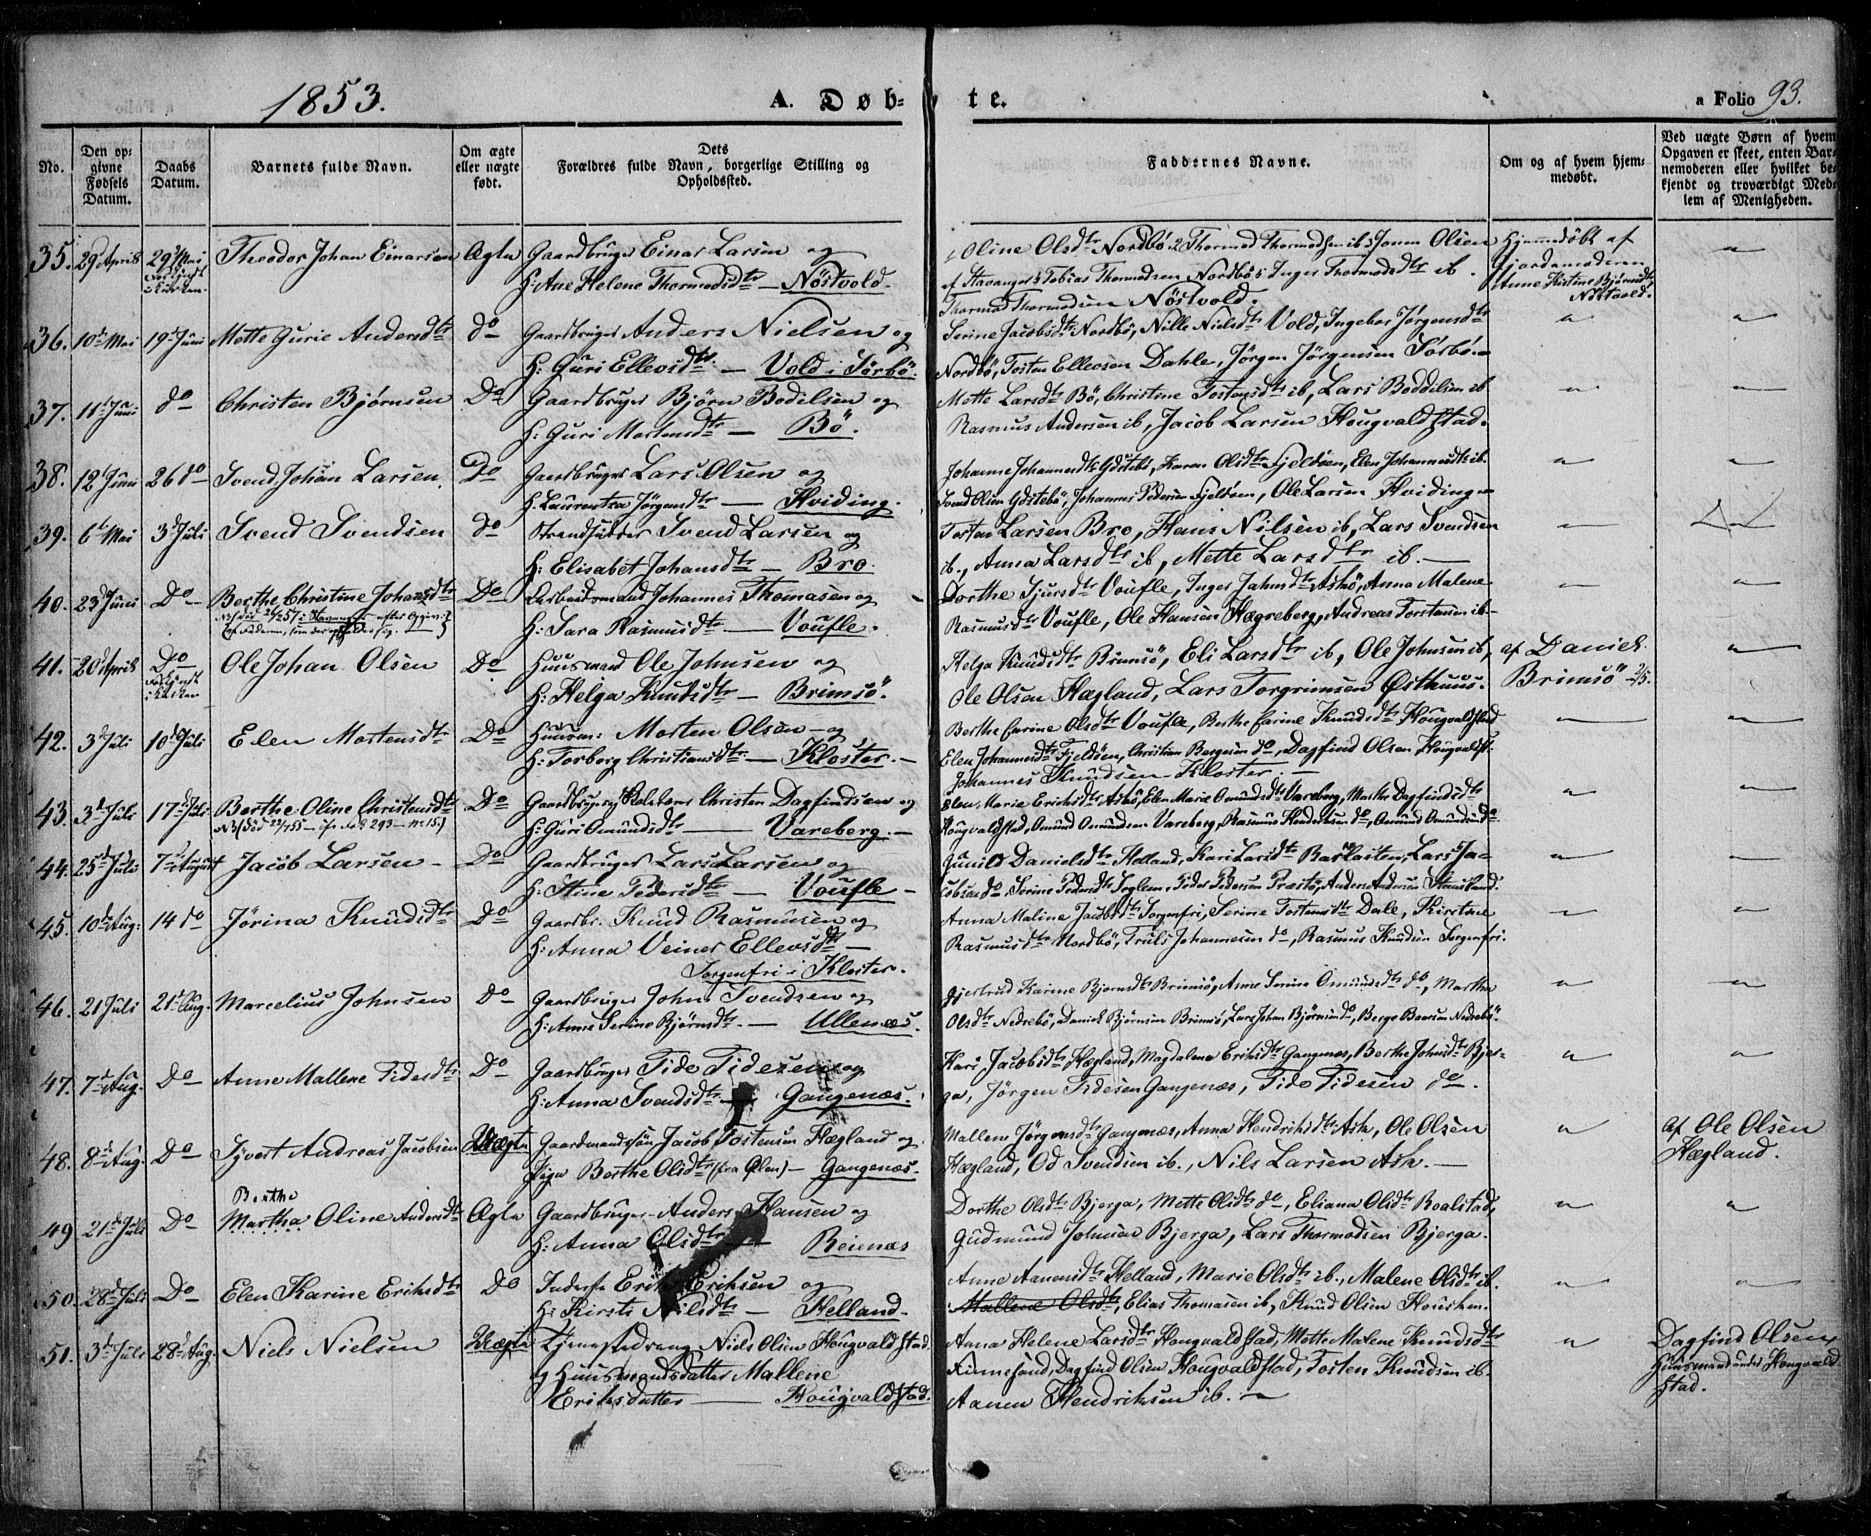 1853.
A. Døb-te.
a Folio 93.
No.
Den op-
givne
Fødsels
Datum.
Daabs
Datum.
Barnets fulde Navn.
Om ægte
eller uægte
født.
Dets
Forældres fulde Navn, borgerlige Stilling og
Opholdssted.
Faddernes Navne.
Om og af hvem hjem-
medøbt.
Ved uægte Børn af hvem
Opgaven er skeet, enten Bar-
nemoderen eller hvilket be-
kjendt og troværdigt Med-
lem af Menigheden.
35. 29 April 29 Mai Theodor Johan Einarsen Ægte Gaardbruger Einar Larsen og
H: Ane Helene Thormodsdtr — Nöstvold.
Oline Olsdtr Nordbö, 2 Thormod Thormodsen ib, 3 Jonas Olsen
af Stavanger, 4 Tobias Thormodsen Nordbö, 5 Inger Thormodsdtr ib.
Thormod Thormodsen Nöstvold.
Hjemmedöbt af
Gjordemoderen
Anne Kistine Bjørnsdtr
Nöstvold.
36. 10 Mai 19 Juni Mette Gurie Andersdtr do Gaardbruger Anders Nielsen og
H: Guri Ellevsdtr — Vold i Sörbö.
Serine Jacobsdtr Nordbö, Nille Nielsdtr Vold, Ingebor Jørgensdtr
Nordbö, Tosten Ellevsen Dahle, Jørgen Jörgensen Sörbö
37. 11 Juni do Christen Bjørnsen Do Gaardbruger Bjørn Bodelsen og
H: Guri Mortensdtr — Bö.
Mette Larsdtr Bö, Christine Tostensdtr ib, Lars Boddelsen ib
Rasmus Andersen ib, Jacob Larsen Hougvaldstad.
38. 12 Juni 26 do Svend Johan Larsen. Do Gaardbruger Lars Olsen og
H: Laurentza Jørgensdtr — Hviding.
Johanne Johannesdtr Gdstebö, Karen Olsdtr Fjeldöen, Elen Johannesdtr ib.
Svend Olsen Gdstebö, Johannes Pedersen Fjeldöen, Ole Larsen Hviding
39. 6 Mai 3 Juli Svend Svendsen do Strandsidder Svend Larsen og
H: Elisabet Johansdtr — Bro.
Tosten Larsen Bro, Hans Nilsen ib, Lars Svendsen
ib., Anna Larsdtr ib, Mette Larsdtr ib. —
40. 23 Juni Do Berthe Christine Johansdtr Do Arbeidsmand Johannes Thomasen og
H: Sara Rasmusdtr — Voufle.
Dorthe Sjursdtr Voufle, Inger Jahnsdtr Askö, Anna Malene
Rasmusdtr Voufle, Ole Hansen Hægreberg, Andreas Torstensen ib
41. 20 April Do Ole Johan Olsen Do Huusmand Ole Johnsen og
H: Helga Knudsdtr — Brimsö.
Helga Knudsdtr Brimsö, Eli Larsdtr ib, Ole Johnsen ib,
Ole Olsen Hægland, Lars Torgrimsen Østhuus.
af Daniel
Brimsö 2/5.
42. 3 Juli 10 Juli Elen Mortensdtr Do Huusm: Morten Olsen og
H: Torborg Christiansdtr — Kloster. —
Berthe Carine Olsdtr Voufle, Berthe Carine Knudsdtr Hougvaldstad
Elen Johannesdtr Fjeldöen, Christian Bergesen do, Dagfind Olsen Hougvaldst.
Johannes Knudsen Kloster —
43. 3 Juli 17 Juli Berthe Oline Christensdtr Do Gaardbruger Christen Dagfindsen og
H: Guri Omundsdtr — Vareberg. —
Elen Marie Eriksdtr Askö, Elen Marie Omundsdtr Vareberg, Marthe Dagfindsdtr
Hougvaldstad, Omund Omundsen Vareberg, Rasmus Hendriksen do, Omund Omundsen do
44. 25 Juli 7 August Jacob Larsen — Do Gaardbruger Lars Larsen og
H: Stine Pedersdtr — Voufle —
Gunild Danielsdtr Helland, Kari Larsdtr, Lars Ja-
cobsen do, Serine Pedersdtr, Peder Pedersen, Anders Andersen
45. 10 Aug: 14 do Jörina Knudsdtr Do Gaardbr: Knud Rasmusen og
H: Anna Veiner Ellevsdtr —
Sorgenfri i Kloster.
Anna Maline Jacobsdtr Sorgenfri, Serine Tostensdtr Dale, Kirstine
Rasmusdtr Nordbö, Truls Johannesen do, Rasmus Knudsen Sorgenfri.
46. 21 Juli 21 Aug. Marcelius Johnsen Do Gaardbruger John Svendsen og
H: Anne Serine Bjørnsdtr. — Ullenæs.
Gjertrud Karine Bjørnsdtr Brimsö, Anne Serine Omundsdtr do, Martha
Olsdtr Nedrebö, Daniel Bjørnsen Brimsö, Lars Johan Bjørnsen do, Berge Boesen Nedrebö.
47. 7 Aug. Do Anne Mallene Tidesdtr Do Gaardbruger Tide Tidesen og
H: Anna Svendsdtr — Gangenæs.
Kari Jacobsdtr Hægland, Magdalene Eriksdtr Gangenæs, Berthe Johnsdtr Bjer-
ga, Jörgen Tidesen Gangenæs, Tide Tidesen do.
48. 8 Aug. Do Sjvert Andreas Jacobsen Uægte Gaardmandssön Jacob Tostensen Hægland og
Pige Berthe Olsdtr (fra Ølen) — Gangenæs.
Mallene Jörgensdtr Gangenæs, Anna Hendriksdtr Ask, Ole Olsen
Hægland, Od Svendsen ib., Nils Larsen Ask. —
af Ole Olsen
Hægland.
49 21 Juli Do Berthe
Martha Oline Andersdtr Ægte Gaardbruger Anders Hansen og
H: Anna Olsdtr Reienæs
Dorthe Olsdtr Bjerga, Mette Olsdtr do, Eliana Olsdtr Roalstad,
Gudmund Johnsen Bjerga, Lars Thormodsen Bjerga.
50. 28 Juli Do Elen Karine Eriksdtr Do Inderste Erik Eriksen og
H: Kirsti Nilsdtr — Helland.
Anne Aanensdtr Helland, Marie Olsdtr ib., Malene Olsdtr ib.
Mallene Olsdtr, Elias Thomasen ib, Knud Olsen Housken.
51. 3 Juli 28 Aug. Niels Nielsen Uægte Tjenestedreng Niels Olsen Hougvaldstad
og Huusmandsdatter Mallene
Eriksdatter — Hougvaldstad.
Anna Helene Larsdtr Hougvaldstad, Mette Malene Knudsdtr
Finnesand, Dagfind Olsen Hougvaldstad, Tosten Knudsen ib.
Aanen Hendriksen ib.
Dagfind Olsen
Huusmand under Hougvald
stad.